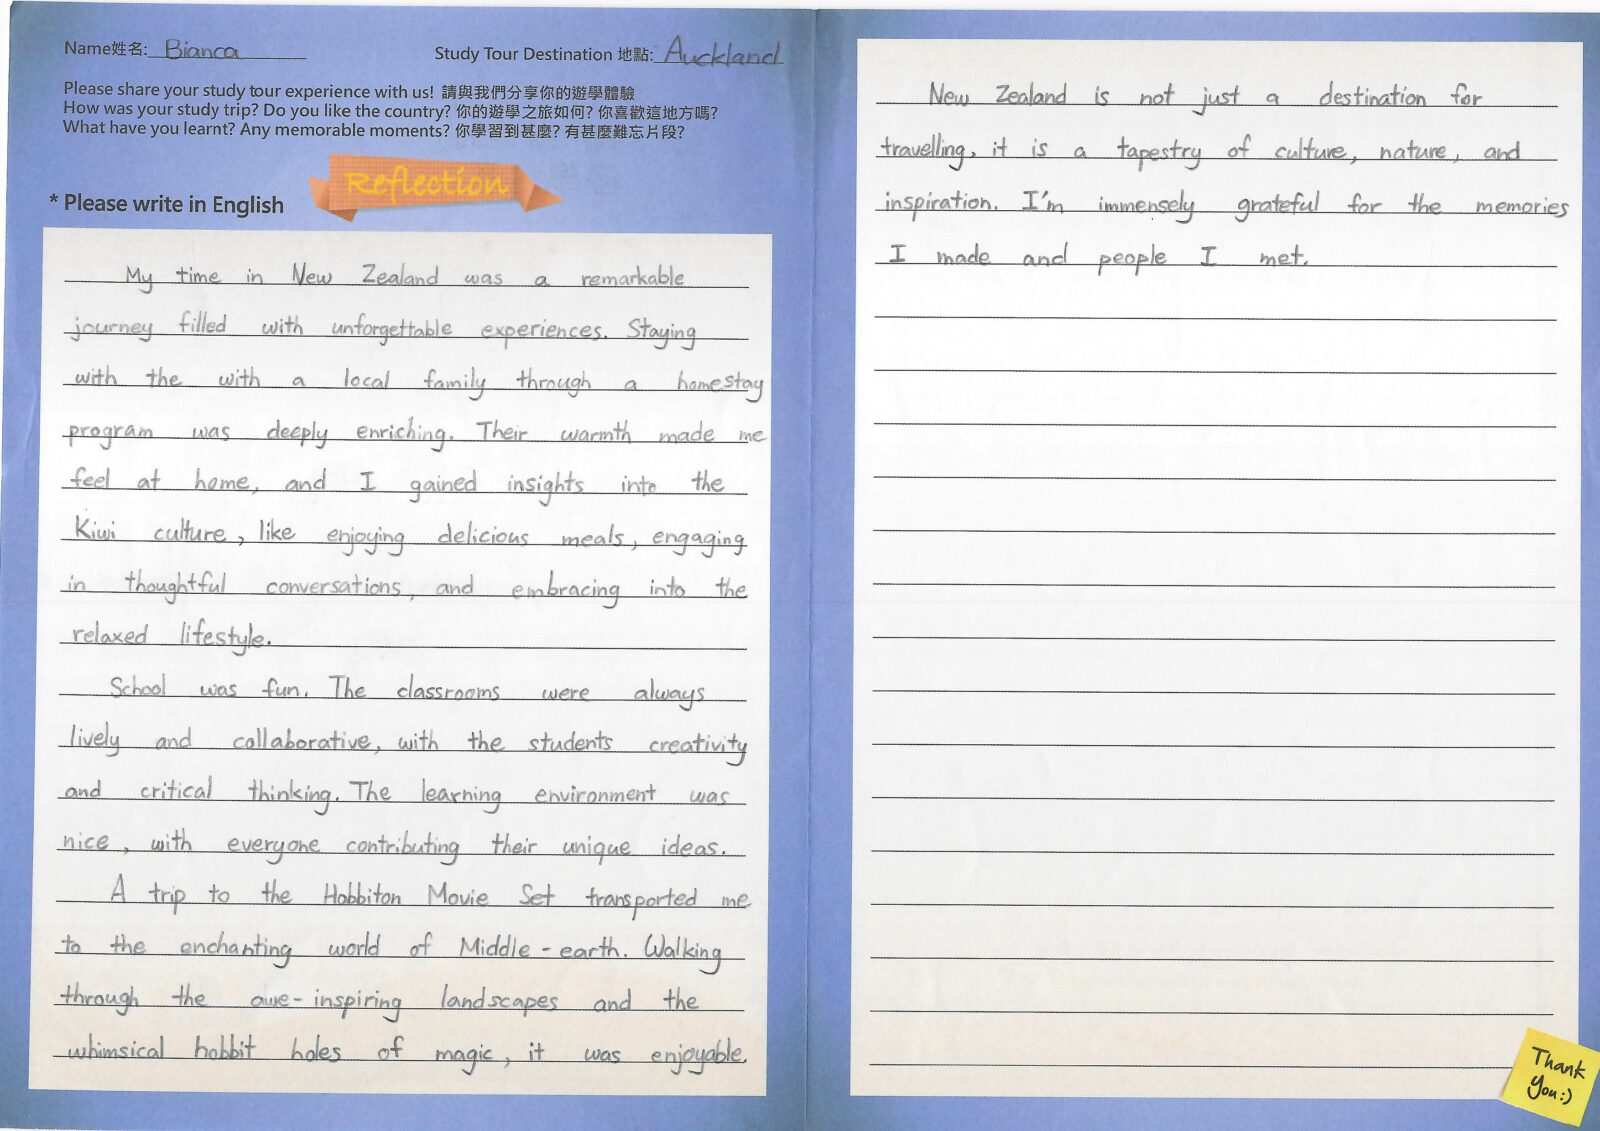 Name姓名: Bianca
Study Tour Destination 地點: Auckland
Please share your study tour experience with us! 請與我們分享你的遊學體驗
How was your study trip? Do you like the country? 你的遊學之旅如何? 你喜歡這地方嗎?
What have you learnt? Any memorable moments? 你學習到甚麼? 有甚麼難忘片段?
Reflection
* Please write in English
My time in New Zealand was a remarkable
journey filled with unforgettable experiences. Staying
with the with a local family through a homestay
program was deeply enriching. Their warmth made me
feel at home, and I gained insights into the
Kiwi culture, like enjoying delicious meals, engaging
in thoughtful conversations, and embracing into the
relaxed lifestyle.
School was fun. The classrooms were always
lively and collaborative, with the students creativity
and critical thinking. The learning environment was
nice, with everyone contributing their unique ideas.
A trip to the Hobbiton Movie Set transported me
to the enchanting world of Middle-earth. Walking
through the awe-inspiring landscapes and the
whimsical hobbit holes of magic, it was enjoyable.
New Zealand is not just a destination for
travelling, it is a tapestry of culture, nature, and
inspiration. I'm immensely grateful for the memories
I made and people I met.
Thank
you:)